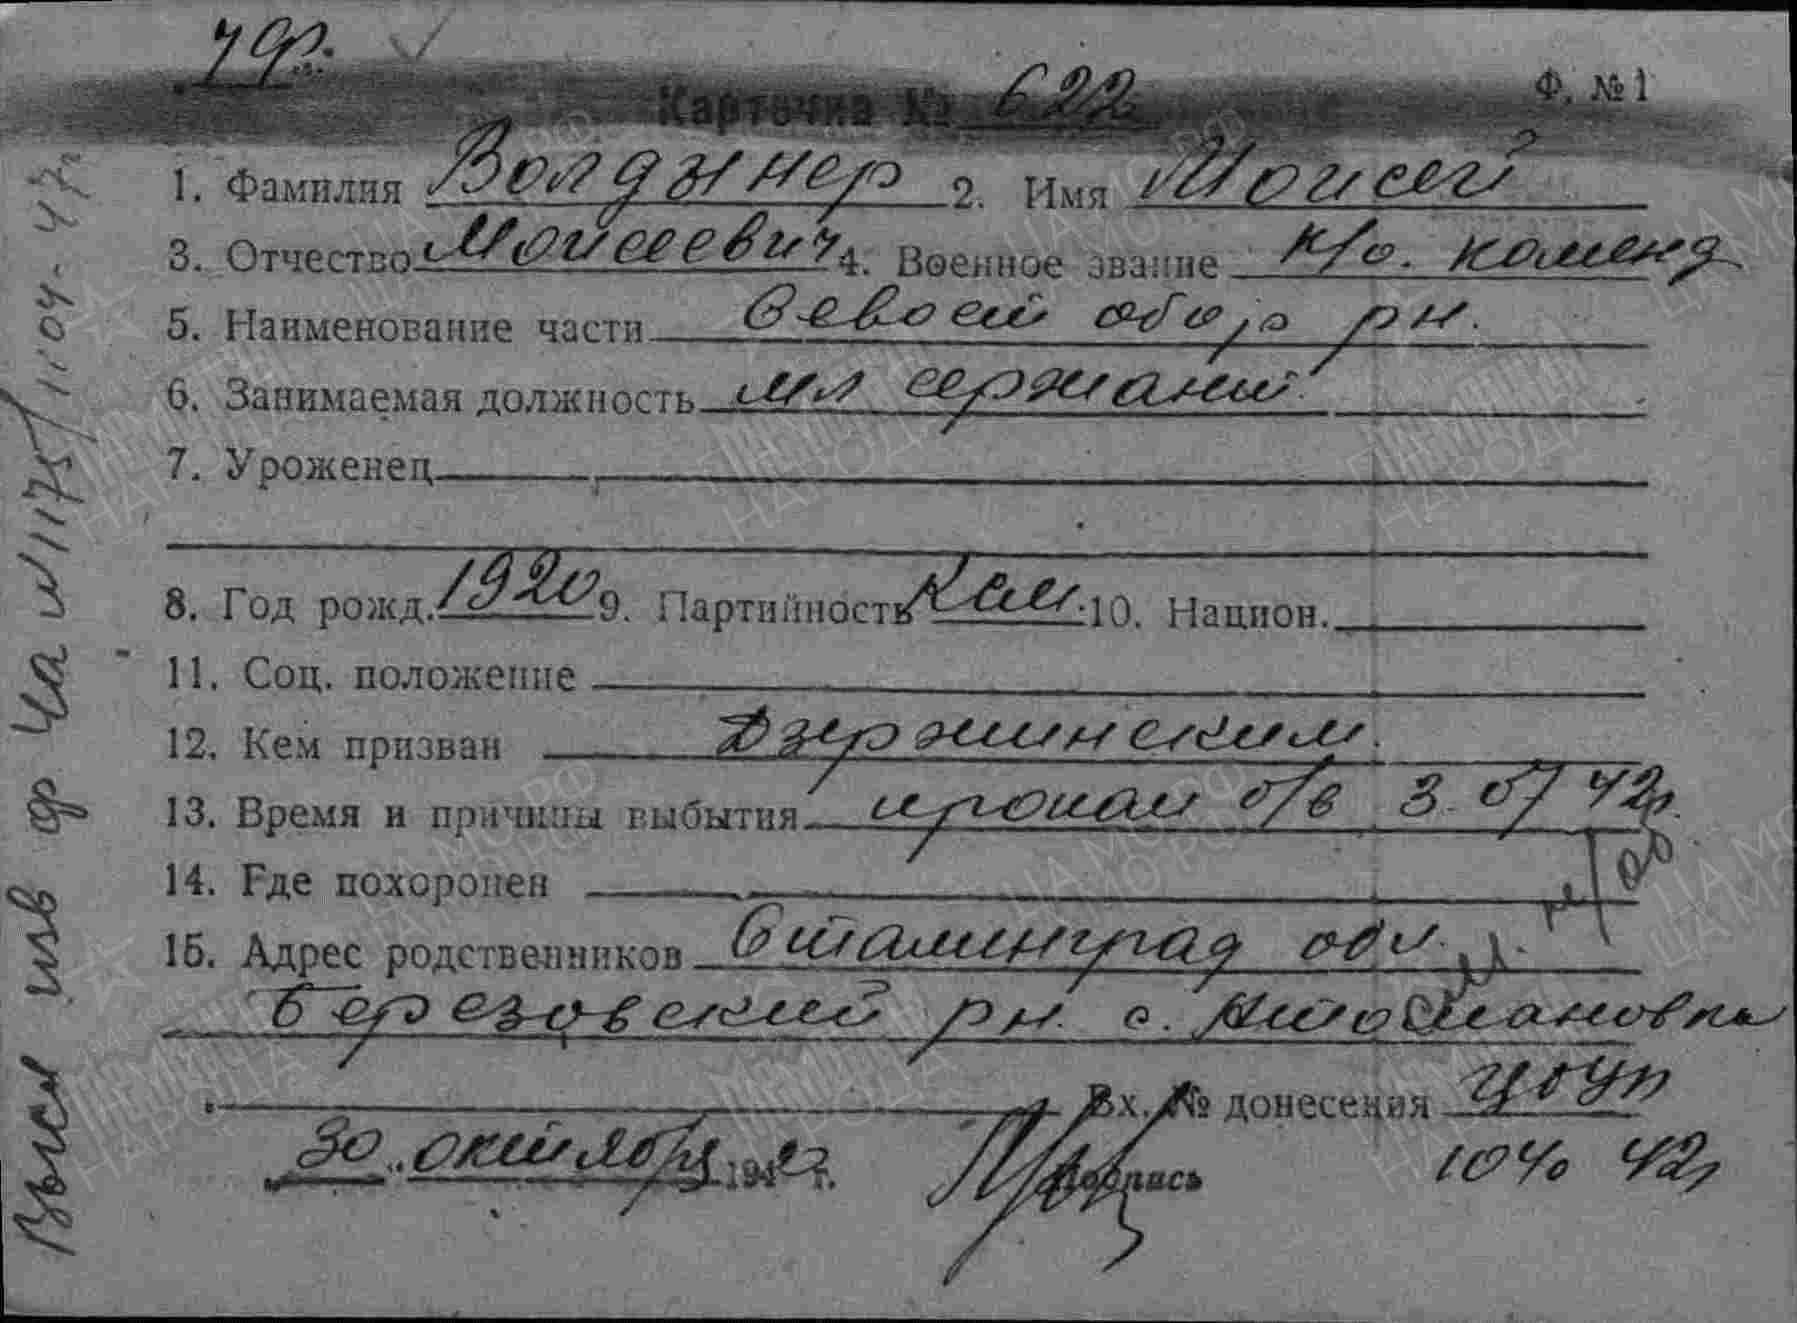 ЧФ.
Карточка № 622
Ф. №1
1. Фамилия Волдынер 2. Имя Моисей
3. Отчество Моисеевич 4. Военное звание к/о. коменд
5. Наименование части Севаст обор рн.
6. Занимаемая должность мл сержант
7. Уроженец
8. Год рожд. 1920 9. Партийность Кам. 10. Национ.
11. Соц. положение
12. Кем призван Дзержинским
13. Время и причины выбытия пропал б/в 3.07 42г.
14. Где похоронен
15. Адрес родственников Сталинград обл.
Березовский рн. с.
Вх. № донесения
30 октября 1942 г. Подпись 42г
ЦАМО РФ
ПАМЯТЬ НАРОДА